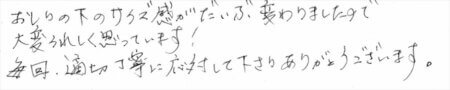 おしりの下のサイズ感がだいぶ変わりましたので
大変うれしく思っています!
毎回、適切丁寧に応対して下さりありがとうございます。